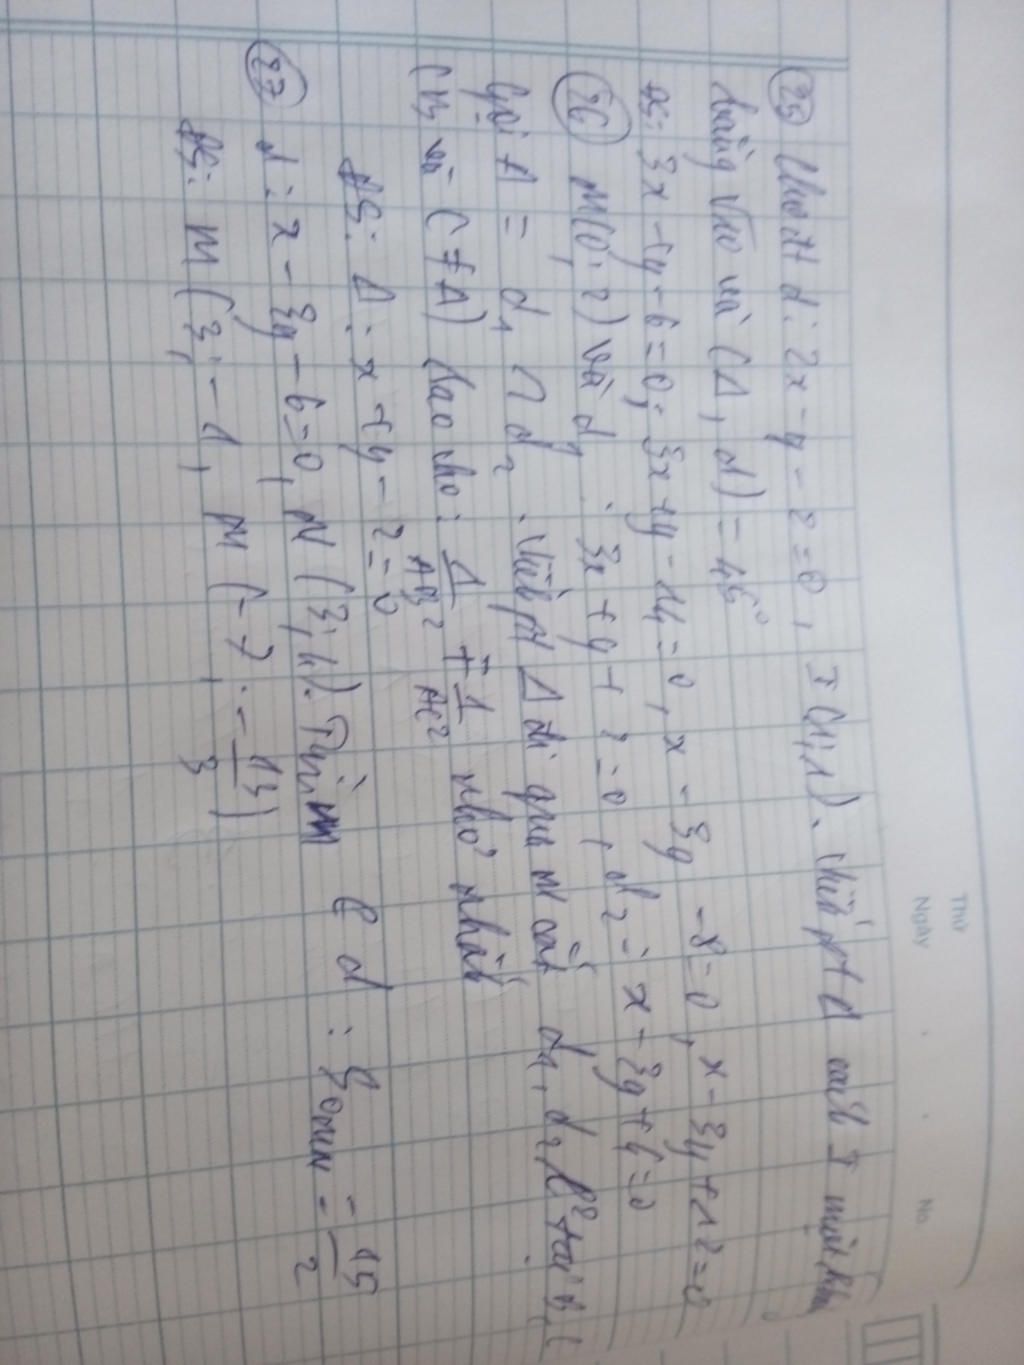 Thứ
Ngày No.
(25) Cho đt d: 2x - y - 2 = 0, I(1;1). Viết pt Δ cách I một khoảng
bằng √10 và (Δ, d) = 45°
ĐS: 3x + y + 6 = 0; 3x + y - 14 = 0, x - 3y - 8 = 0, x - 3y + 12 = 0
(26) M(0;2) và d1: 3x + y + 2 = 0, d2: x - 3y + 4 = 0
Gọi A = d1 ∩ d2. Viết pt Δ đi qua M cắt d1, d2 lần lượt tại B, C
(B và C ≠ A) sao cho: 1/AB² + 1/AC² nhỏ nhất
ĐS: Δ: x + y - 2 = 0
(27) d: x - 3y - 6 = 0, N(3;4). Tìm M ∈ d: S OMN = 15/2
ĐS: M(3; -1, M(-7; -13/3)